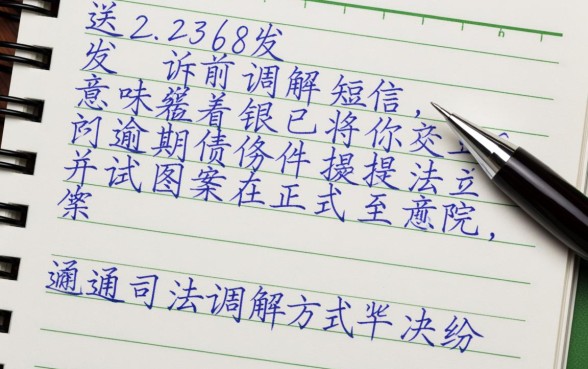 送2.2368发
发 诉前调解短信,
意味着银已将你交
逾期债务件提法立
并试图案在正式至意院,
案
通司法调解方式 决纷